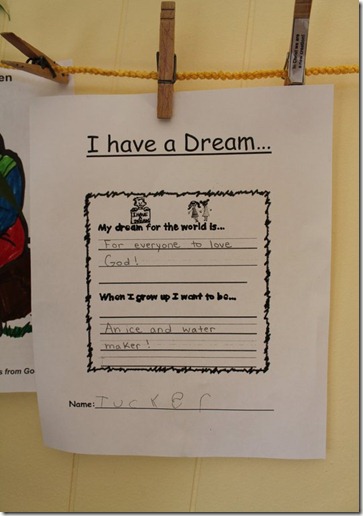 I have a Dream...
My dream for the world is...
For everyone to love
God!
When I grow up I want to be...
An ice and water
maker!
Name: Tucker
en
s from Go